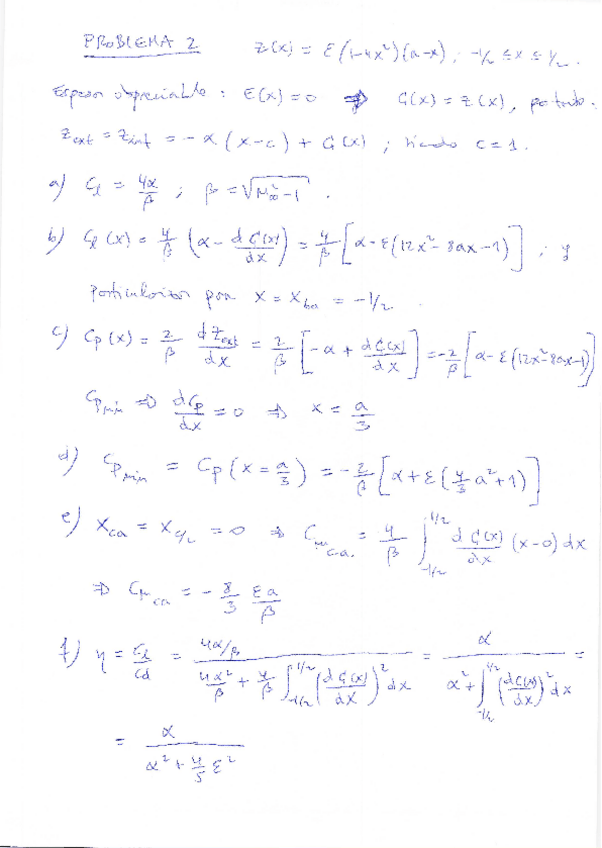 PROBLEMA 2 z(x) = ε(1-4x²)(a-x) ; -1/2 ≤ x ≤ 1/2 .
Espesor despreciable : E(x) = 0 ⇒ C(x) = z(x), por tanto.
z_ext = z_int = -α (x-c) + C(x) ; siendo c = 1.
a) C_l = 4α/β ; β = √(M²_∞ -1) .
b) C_l (x) = 4/β (α - dC(x)/dx) = 4/β [α - ε(12x² - 8ax - 1)] ; y
particularizar para x = x_ba = -1/2 .
c) C_p (x) = 2/β dz_ext/dx = 2/β [-α + dC(x)/dx] = -2/β [α - ε(12x² - 8ax - 1)]
C_p min ⇒ dC_p/dx = 0 ⇒ x = a/3
d) C_p min = C_p (x = a/3) = -2/β [α + ε(4/3 a² + 1)]
e) x_ca = x_c/2 = 0 ⇒ C_m c.a. = 4/β ∫_{-1/2}^{1/2} dC(x)/dx (x-0) dx
⇒ C_m ca = - 8/3 εa/β
f) η = C_l/C_d = (4α/β) / (4α²/β + 4/β ∫_{-1/2}^{1/2} (dC(x)/dx)² dx) = α / (α² + ∫_{-1/2}^{1/2} (dC(x)/dx)² dx) =
= α / (α² + 4/5 ε²)